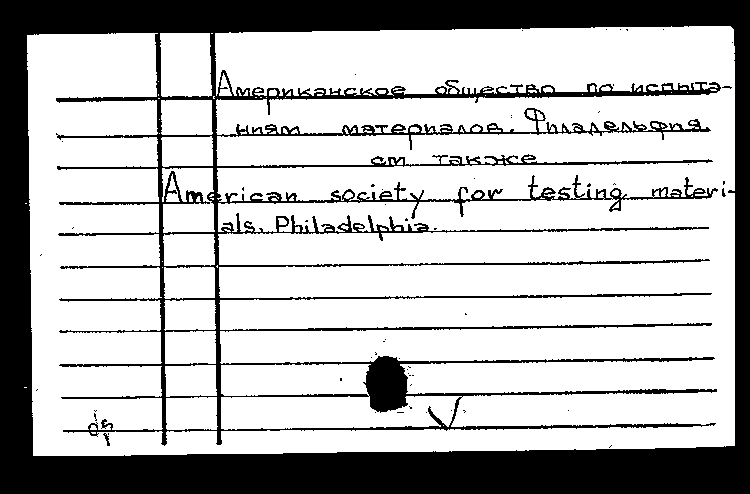 Американское общество по испыта-
ниям материалов. Филадельфия.
см также
American society for testing materi-
als. Philadelphia.